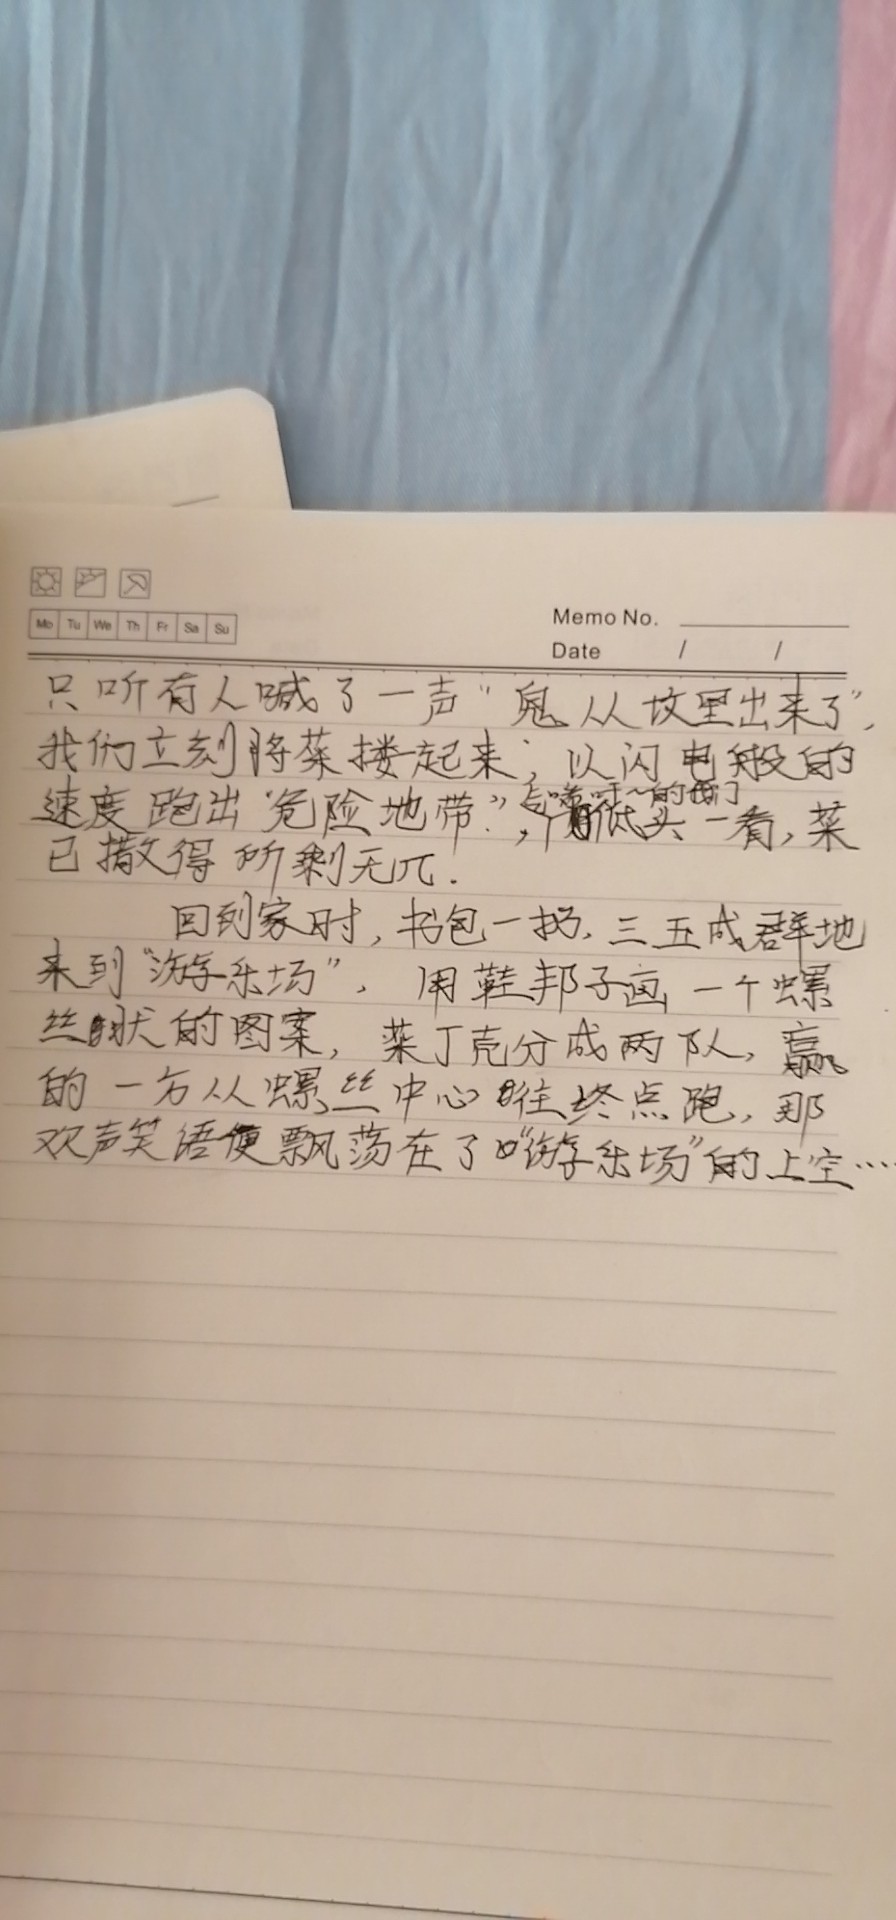 Mo Tu We Th Fr Sa Su
Memo No.
Date / /
只听有人喊了一声“鬼从坟里出来了”,
我们立刻将菜搂起来,以闪电般的
速度跑出“危险地带”,
气喘吁~的我们
低头一看,菜
已撒得所剩无几.
回到家时,书包一扔,三五成群地
来到“游乐场”,用鞋邦子画一个螺
丝状的图案,菜丁壳分成两队,赢
的一方从螺丝中心往终点跑,那
欢声笑语便飘荡在了“游乐场”的上空…